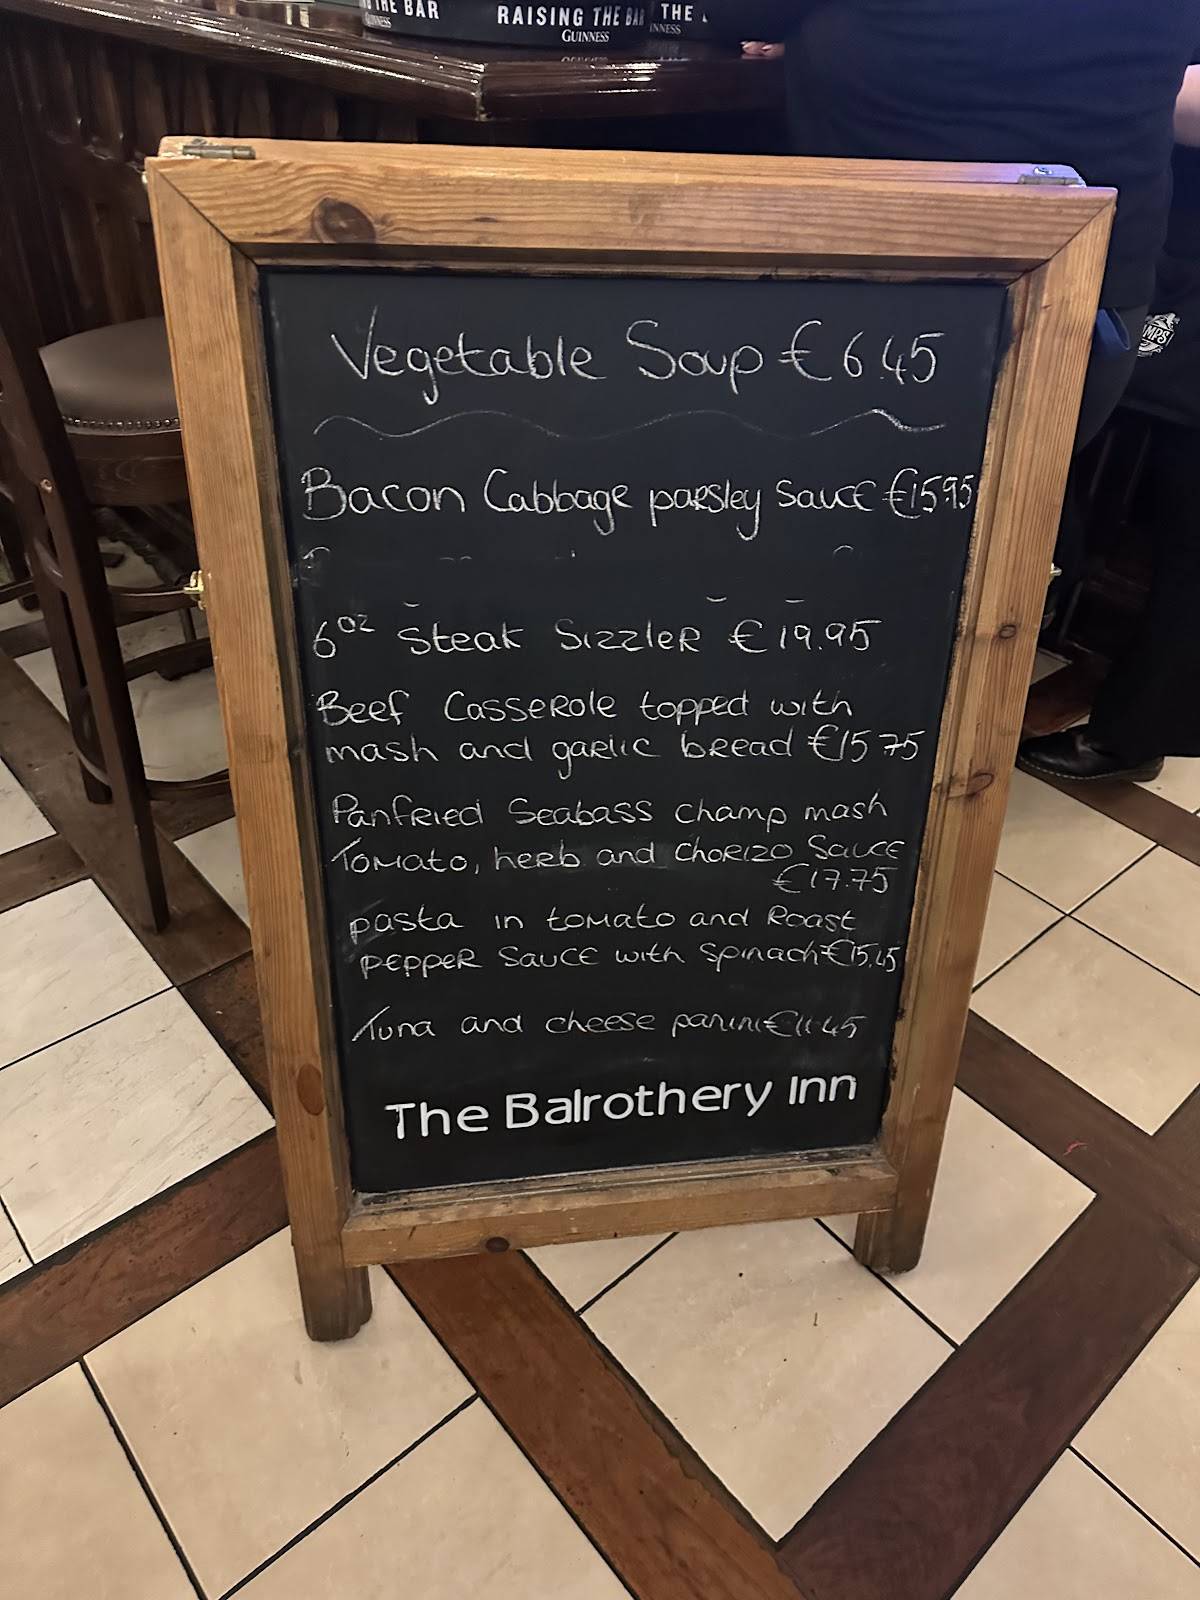 RAISING THE BAR THE
GUINNESS
THE BAR
GUINNESS
INNESS
Vegetable Soup €6.45
Bacon Cabbage parsley sauce €15.95
6oz Steak Sizzler €19.95
Beef Casserole topped with
mash and garlic bread €15.75
Panfried Seabass champ mash
Tomato, herb and chorizo Sauce
€17.75
pasta in tomato and Roast
pepper sauce with spinach €15.45
Tuna and cheese panini €11.45
The Balrothery Inn